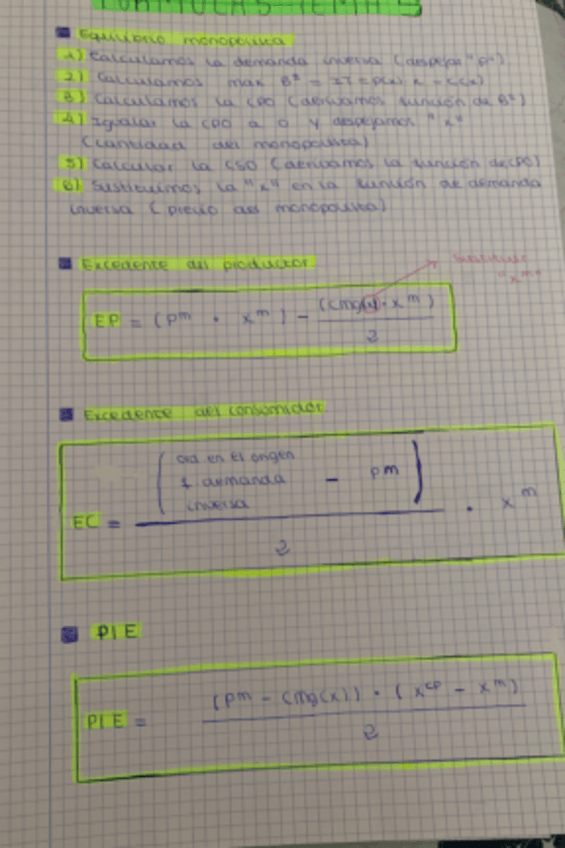 FORMULAS TEMA 5
Equilibrio monopolista
1) Calculamos la demanda inversa (despejar "p")
2) Calculamos max Bº = IT = p(x) · x - C(x)
3) Calculamos la CPO (derivamos función de Bº)
4) Igualar la CPO a 0 y despejamos "x"
(cantidad del monopolista)
5) Calcular la CSO (derivamos la función de CPO)
6) Sustituimos la "x" en la función de demanda
inversa (precio del monopolista)
Excedente del productor
sustituir
"x^m"
EP = (p^m · x^m) - (cmg(x) · x^m) / 2
Excedente del consumidor
EC = (ord en el origen
demanda
inversa - p^m) / 2 · x^m
PIE
PIE = (p^m - cmg(x)) · (x^cp - x^m) / 2